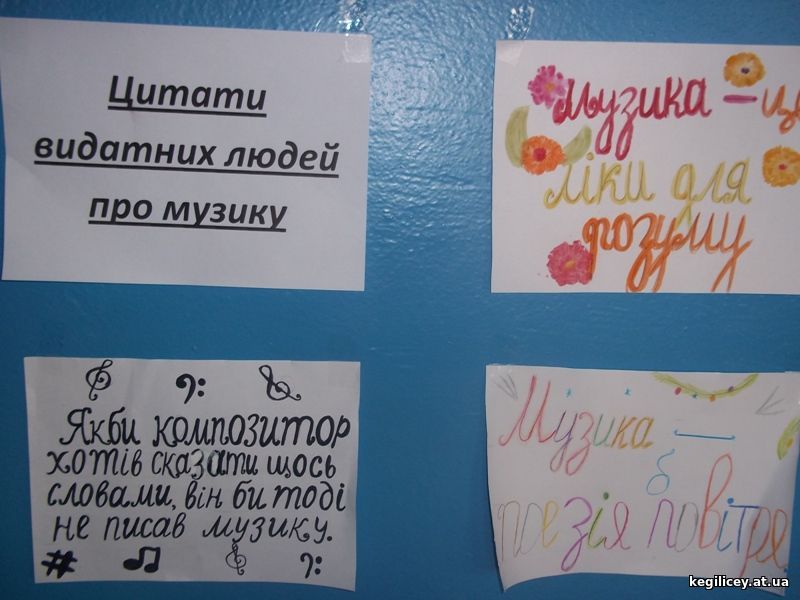 Цитати
видатних людей
про музику
Музика – це
ліки для
розуму
Якби композитор
хотів сказати щось
словами, він би тоді
не писав музику.
Музика —
поезія повітря
kegilicey.at.ua